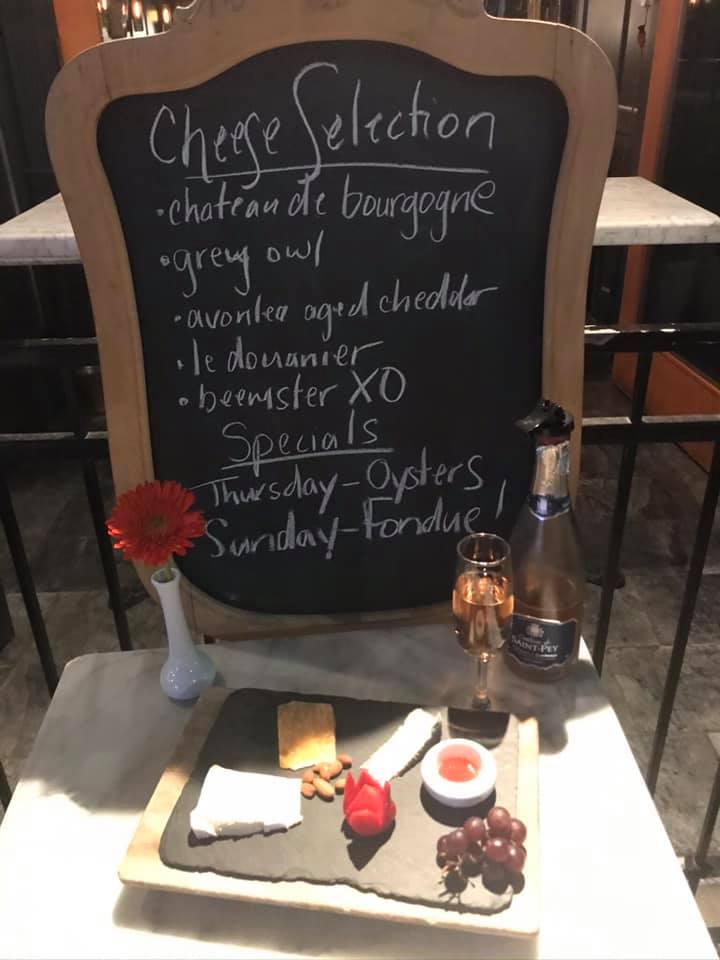 Cheese Selection
•chateau de bourgogne
•grey owl
•avonlea aged cheddar
•le douanier
•beemster XO
Specials
Thursday-Oysters
Sunday-Fondue!
SAINT-PEY